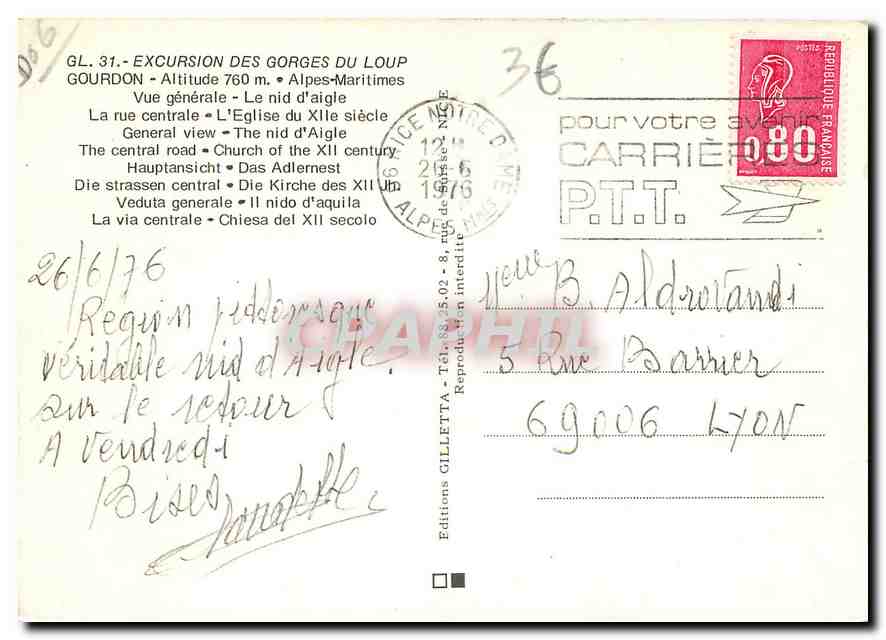 GL. 31. - EXCURSION DES GORGES DU LOUP
GOURDON - Altitude 760 m. • Alpes-Maritimes
Vue générale - Le nid d'aigle
La rue centrale • L'Eglise du XIIe siècle
General view • The nid d'Aigle
The central road • Church of the XII century
Hauptansicht • Das Adlernest
Die strassen central • Die Kirche des XII Jh
Veduta generale • Il nido d'aquila
La via centrale - Chiesa del XII secolo
26/6/76
Région pittoresque
véritable nid d'Aigle.
sur le retour
A vendredi
Bises
Editions GILLETTA - Tél. 88.25.02 - 8, rue de Suisse - NICE
Reproduction interdite
3€
06 NICE NOTRE DAME
1976
ALPES MMES
pour votre avenir
CARRIÈRES
P.T.T.
POSTES
REPUBLIQUE FRANÇAISE
0,80
B. Aldrovandi
5 Rue Barrier
69006 LYON
CPAPHIL